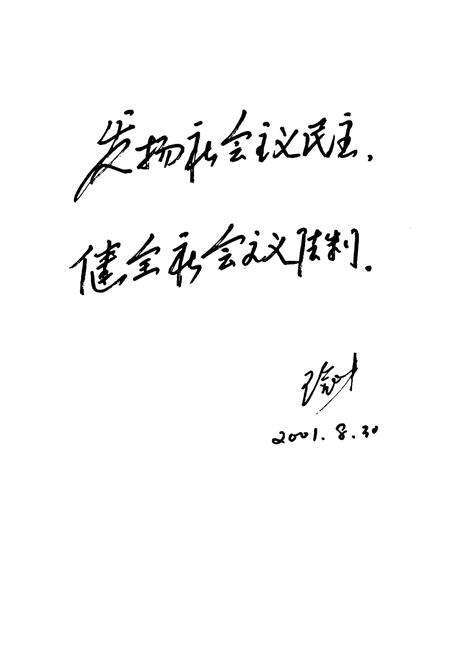 发扬社会主义民主，
健全社会主义法制。
2001.8.30